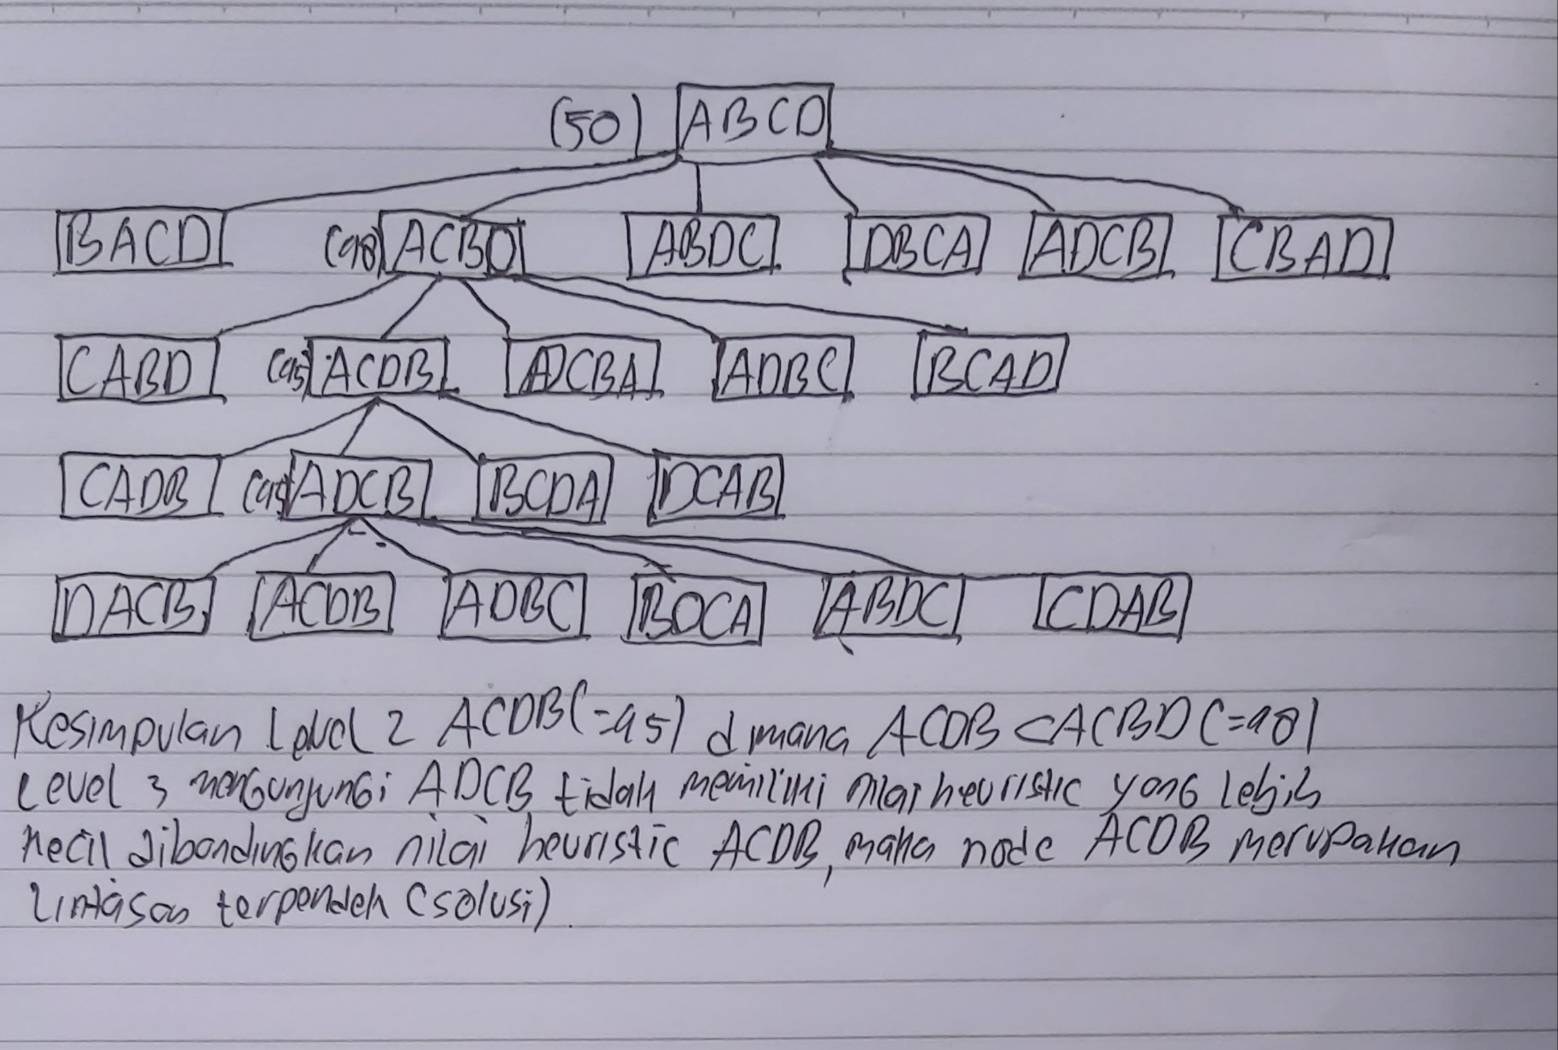 (50) ABCD
BACD (98) ACBD ABDC DBCA ADCB CBAD
CABD (95) ACDB DCBA ADBC BCAD
CADB (95) ADCB BCDA DCAB
DACB ACDB ADBC BDCA ABDC CDAB
Kesimpulan Level 2 ACDB (=95) dimana ACDB < ACBD (=98)
Level 3 mengunjungi ADCB tidak memiliki nilai heuristic yang lebih
kecil dibandingkan nilai heuristic ACDB, maka node ACDB merupakan
Lintasan terpendek (solusi)